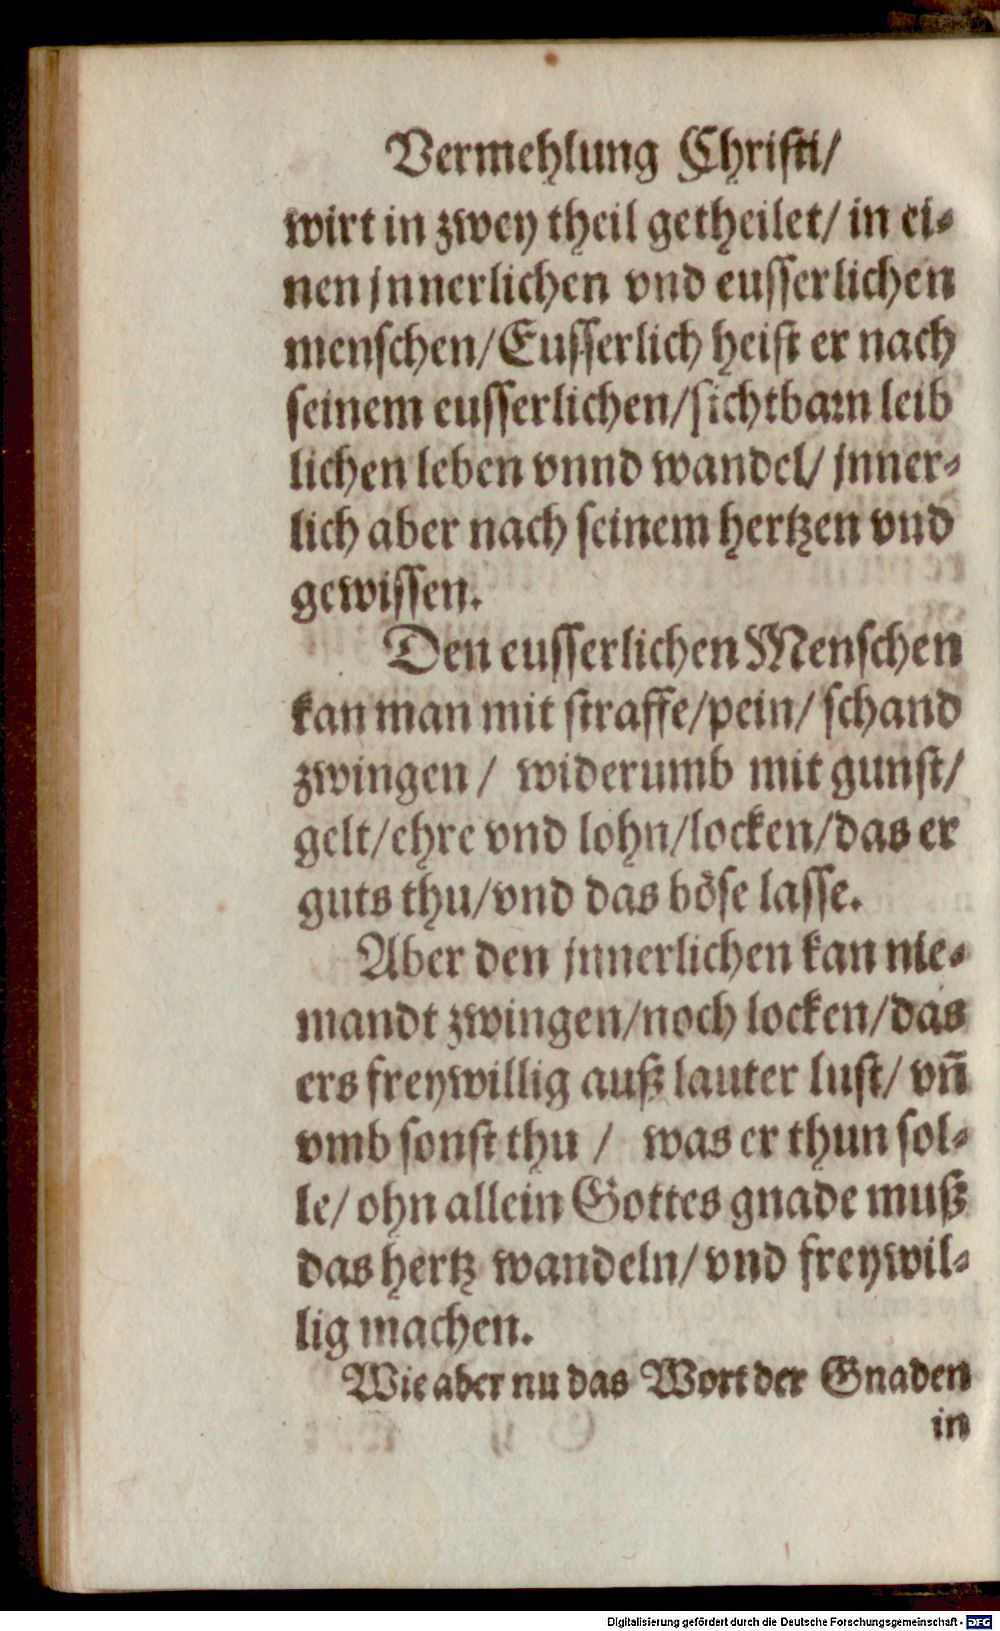 Vermehlung Christi/
wirt in zwey theil getheilet/ in ei-
nen jnnerlichen vnd eusserlichen
menschen/Eusserlich heist er nach
seinem eusserlichen/sichtbarn leib
lichen leben vnnd wandel/ jnner-
lich aber nach seinem hertzen vnd
gewissen.
Den eusserlichen Menschen
kan man mit straffe/pein/ schand
zwingen / widerumb mit gunst/
gelt/ehre vnd lohn/locken/das er
guts thu/vnd das böse lasse.
Aber den jnnerlichen kan nie-
mandt zwingen/noch locken/das
ers freywillig auß lauter lust/ vñ
vmb sonst thu / was er thun sol-
le/ ohn allein Gottes gnade muß
das hertz wandeln/ vnd freywil-
lig machen.
Wie aber nu das Wort der Gnaden
in
Digitalisierung gefördert durch die Deutsche Forschungsgemeinschaft - DFG